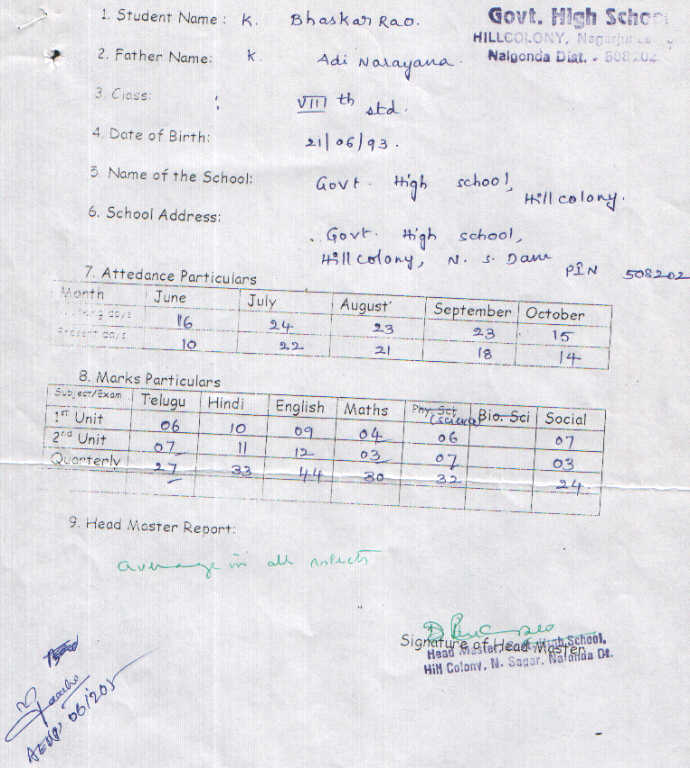 1. Student Name : K. Bhaskar Rao.
Govt. High School
HILLCOLONY, Nagarjuna
Nalgonda Dist. - 508202
2. Father Name: K. Adi Narayana.
3. Class: : VIII th std.
4. Date of Birth: 21/06/93.
5. Name of the School: Govt. High school, Hill colony.
6. School Address: Govt. High school,
Hill colony, N. S. Dam PIN 508202
7. Attedance Particulars
Month June July August September October
Working days 16 24 23 23 15
Present days 10 22 21 18 14
8. Marks Particulars
Subject/Exam Telugu Hindi English Maths Phy. Sci (science) Bio. Sci Social
1st Unit 06 10 09 04 06 07
2nd Unit 07 11 12 03 07 03
Quarterly 27 33 44 30 32 24
9. Head Master Report:
average in all
Signature of Head Master
Head Master, High School,
Hill Colony, N. Sagar, Nalgonda Dt.